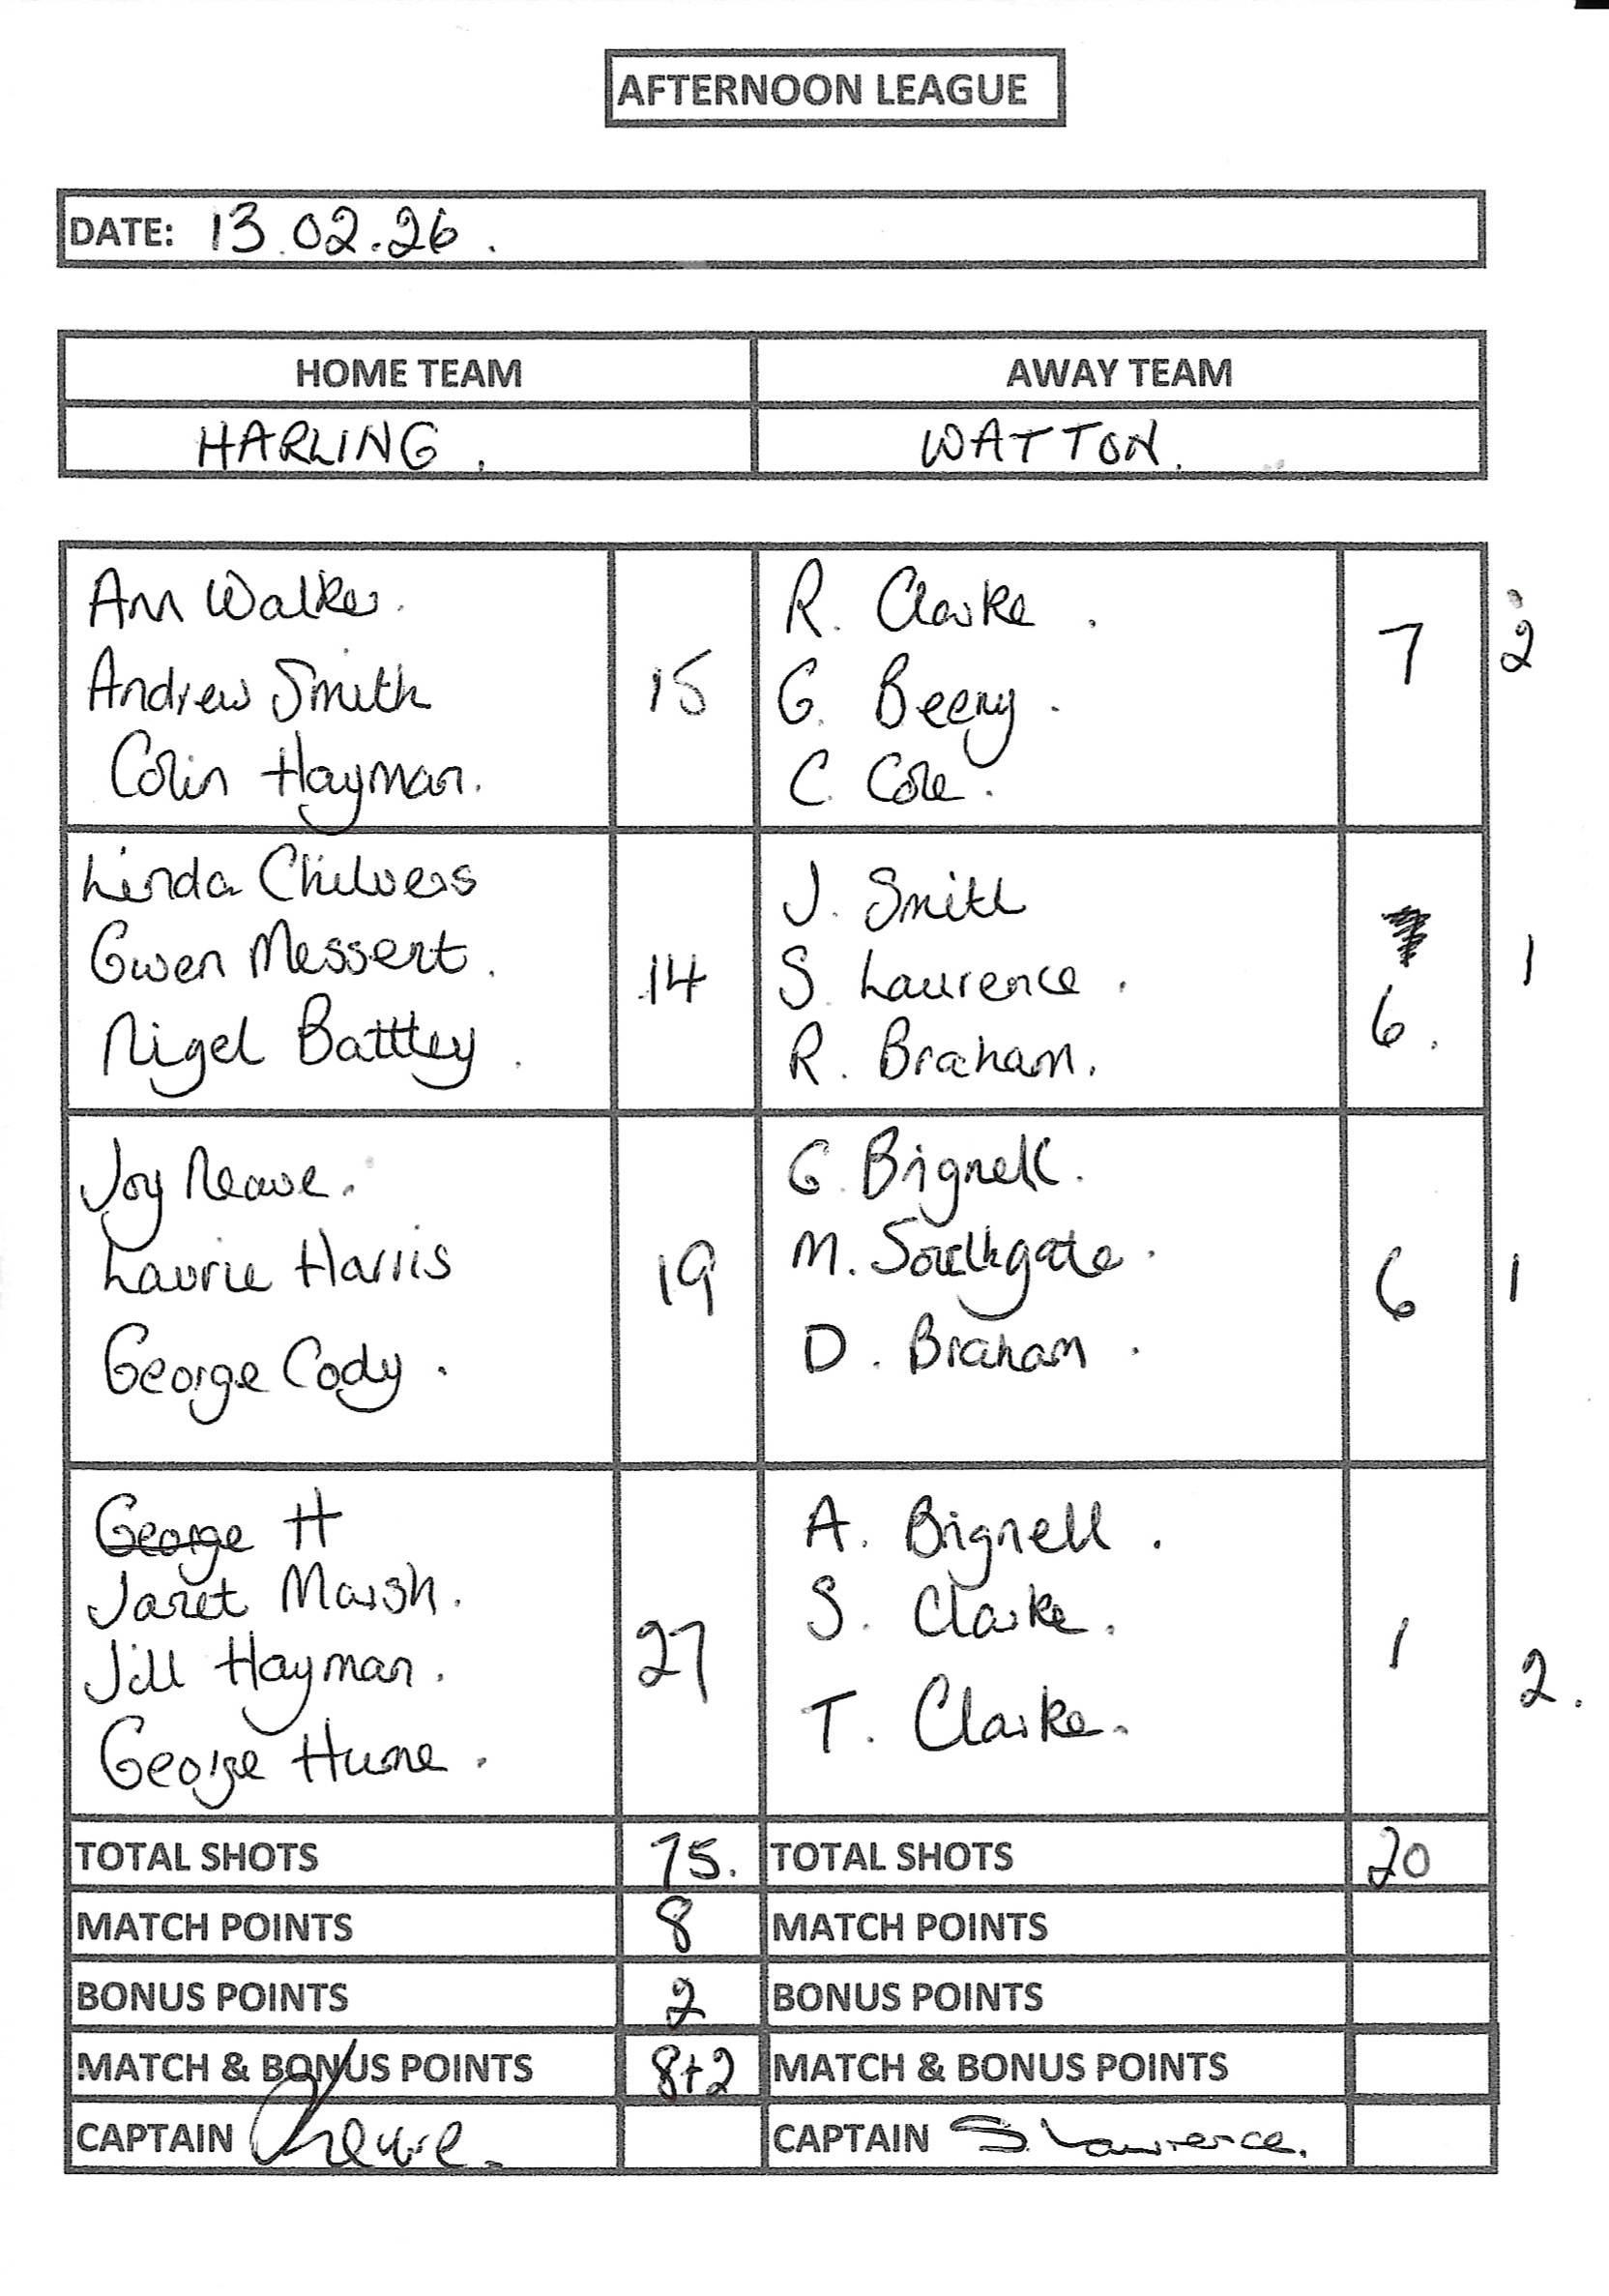 AFTERNOON LEAGUE
DATE: 13.02.26.
HOME TEAM AWAY TEAM
HARLING. WATTON.
Ann Walker.
Andrew Smith
Colin Hayman.
15
R. Clarke.
G. Beeny.
C. Cole.
7
2
Linda Chilvers
Gwen Messert.
Nigel Battley.
14
J. Smith
S. Laurence.
R. Braham.
6.
1
Joy Neave.
Laurie Harris
George Cody.
19
G. Bignell.
M. Southgate.
D. Braham.
6
1
George H
Janet Marsh.
Jill Hayman.
George Hume.
27
A. Bignell.
S. Clarke.
T. Clarke.
1
2.
TOTAL SHOTS 75. TOTAL SHOTS 20
MATCH POINTS 8 MATCH POINTS
BONUS POINTS 2 BONUS POINTS
MATCH & BONUS POINTS 8+2 MATCH & BONUS POINTS
CAPTAIN CAPTAIN S. Lawrence.